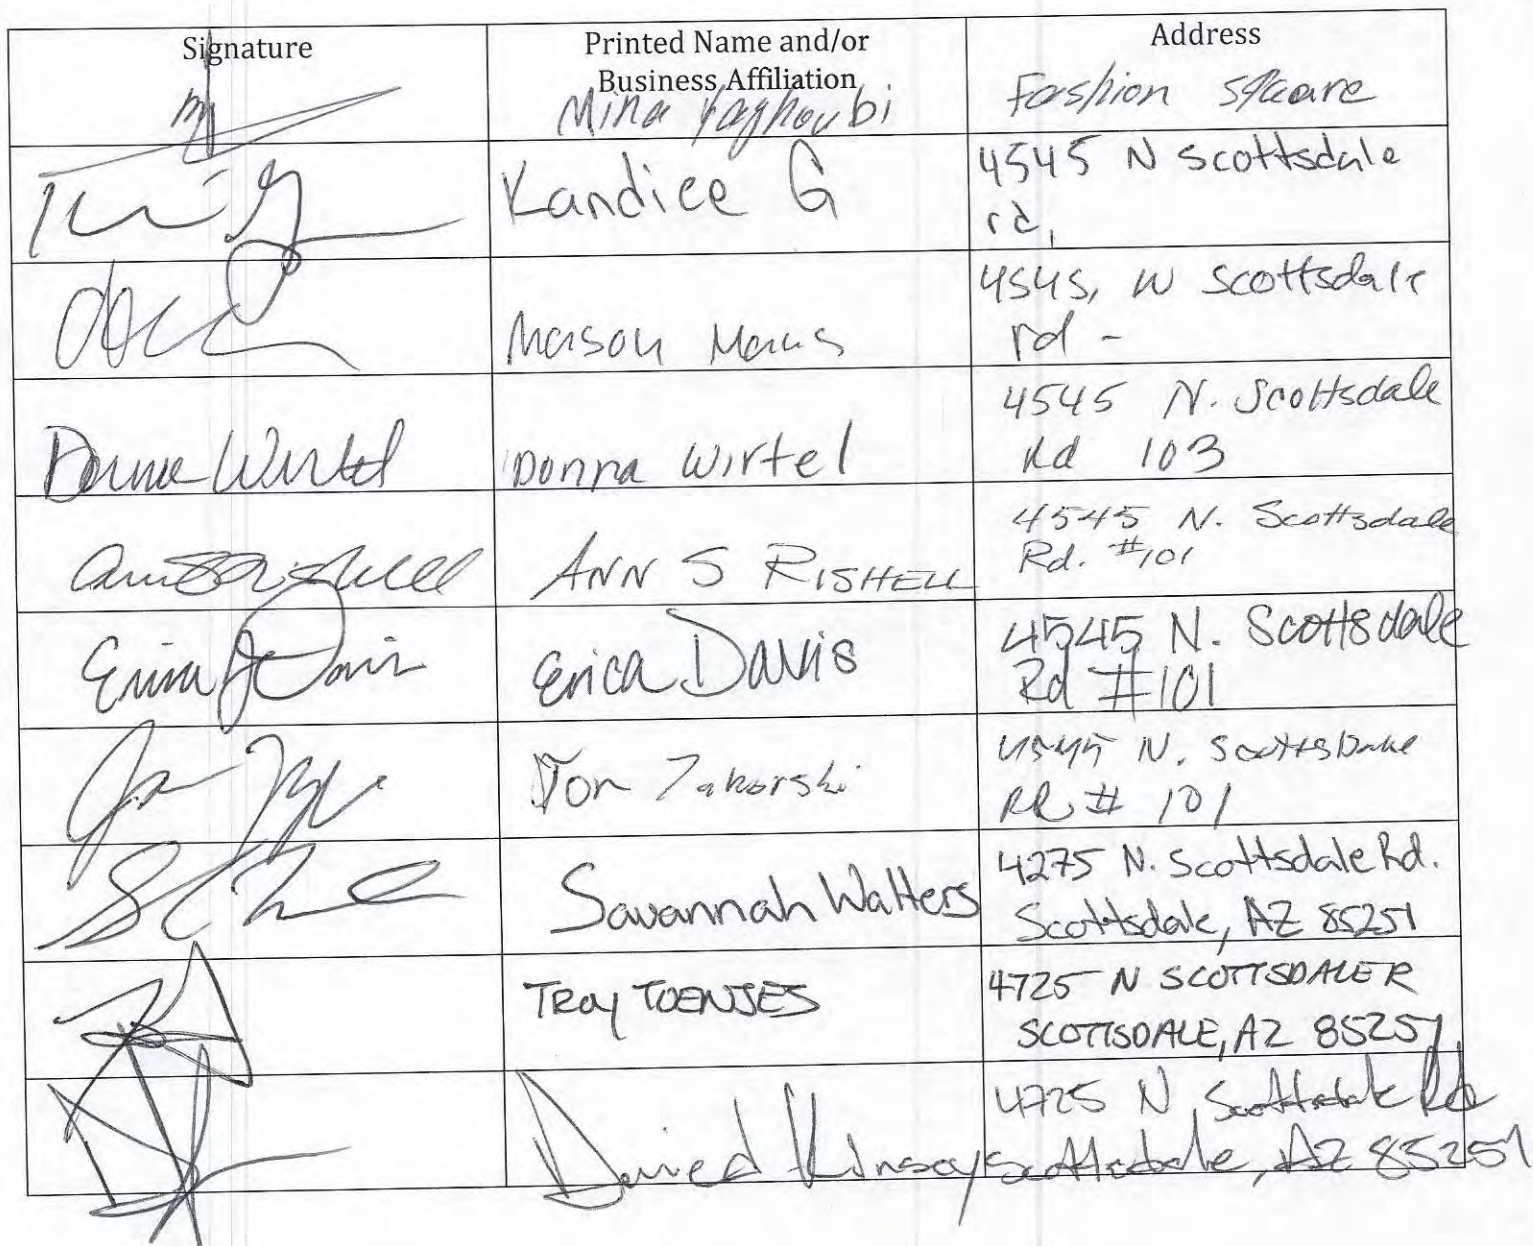 Signature
Printed Name and/or
Business Affiliation
Address
Mina Yaghoubi
Fashion square
Kandice G
4545 N Scottsdale
rd,
Mason
4545, N Scottsdale
rd -
Donna Wirtel
Donna Wirtel
4545 N. Scottsdale
Rd 103
Ann S Rishell
ANN S RISHELL
4545 N. Scottsdale
Rd. #101
Erica J Davis
Erica Davis
4545 N. Scottsdale
Rd #101
Jon Zakorski
4545 N. Scottsdale
RD # 101
Savannah Walters
4275 N. Scottsdale Rd.
Scottsdale, AZ 85251
TROY TOENJES
4725 N SCOTTSDALE R
SCOTTSDALE, AZ 85251
David Kinsey
4725 N Scottsdale Rd
Scottsdale, AZ 85251